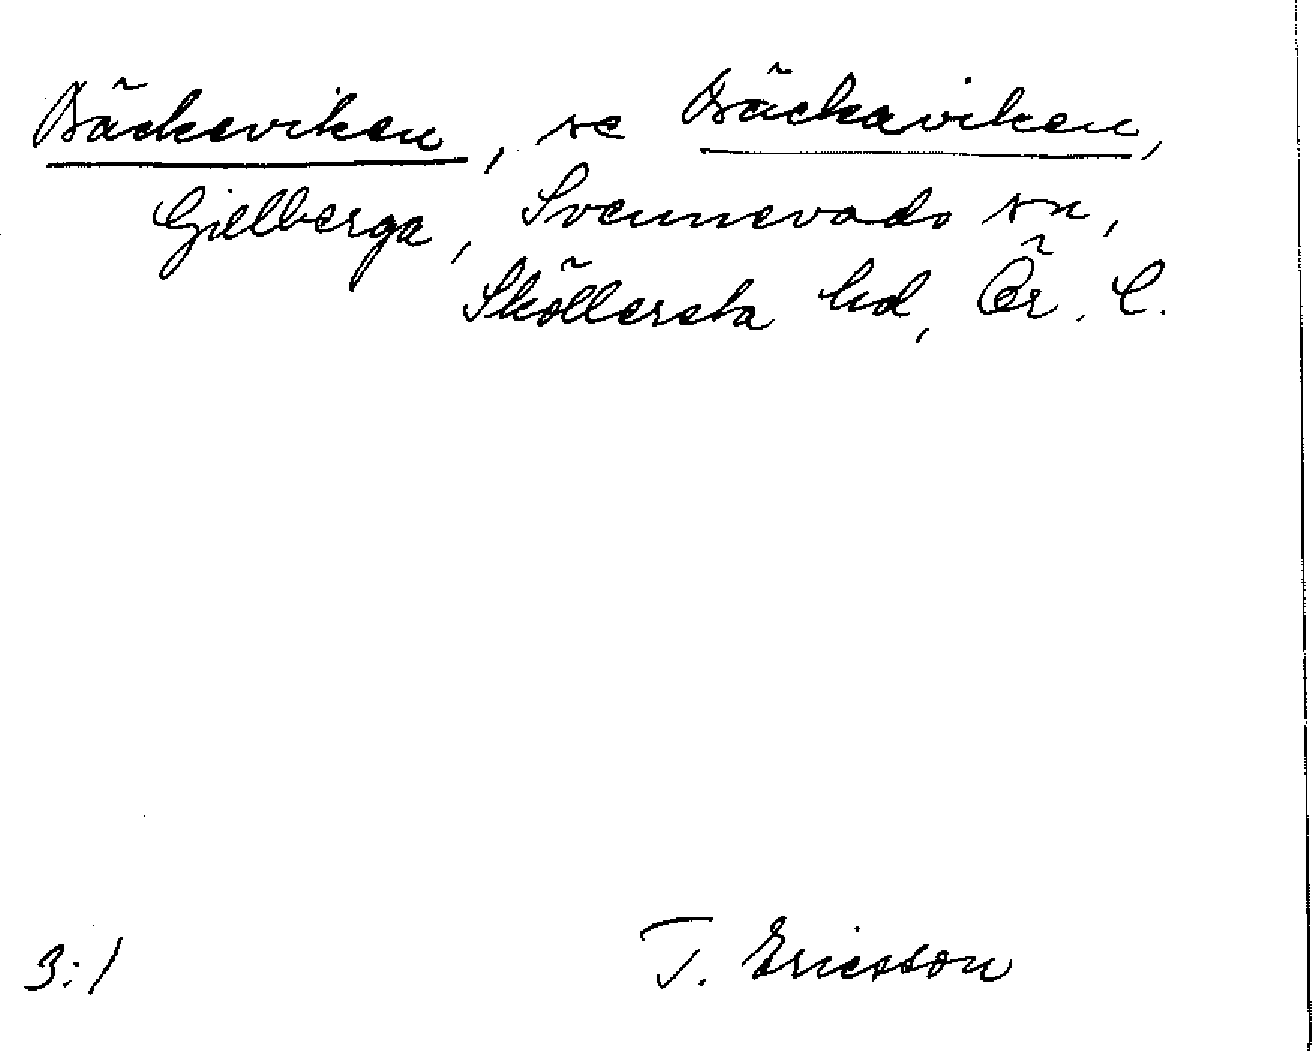 Bäckeviken, se Bäckaviken,
Gjelberga, Svennevads sn,
Sköllersta hd, Ör. l.
3:1 T. Ericsson